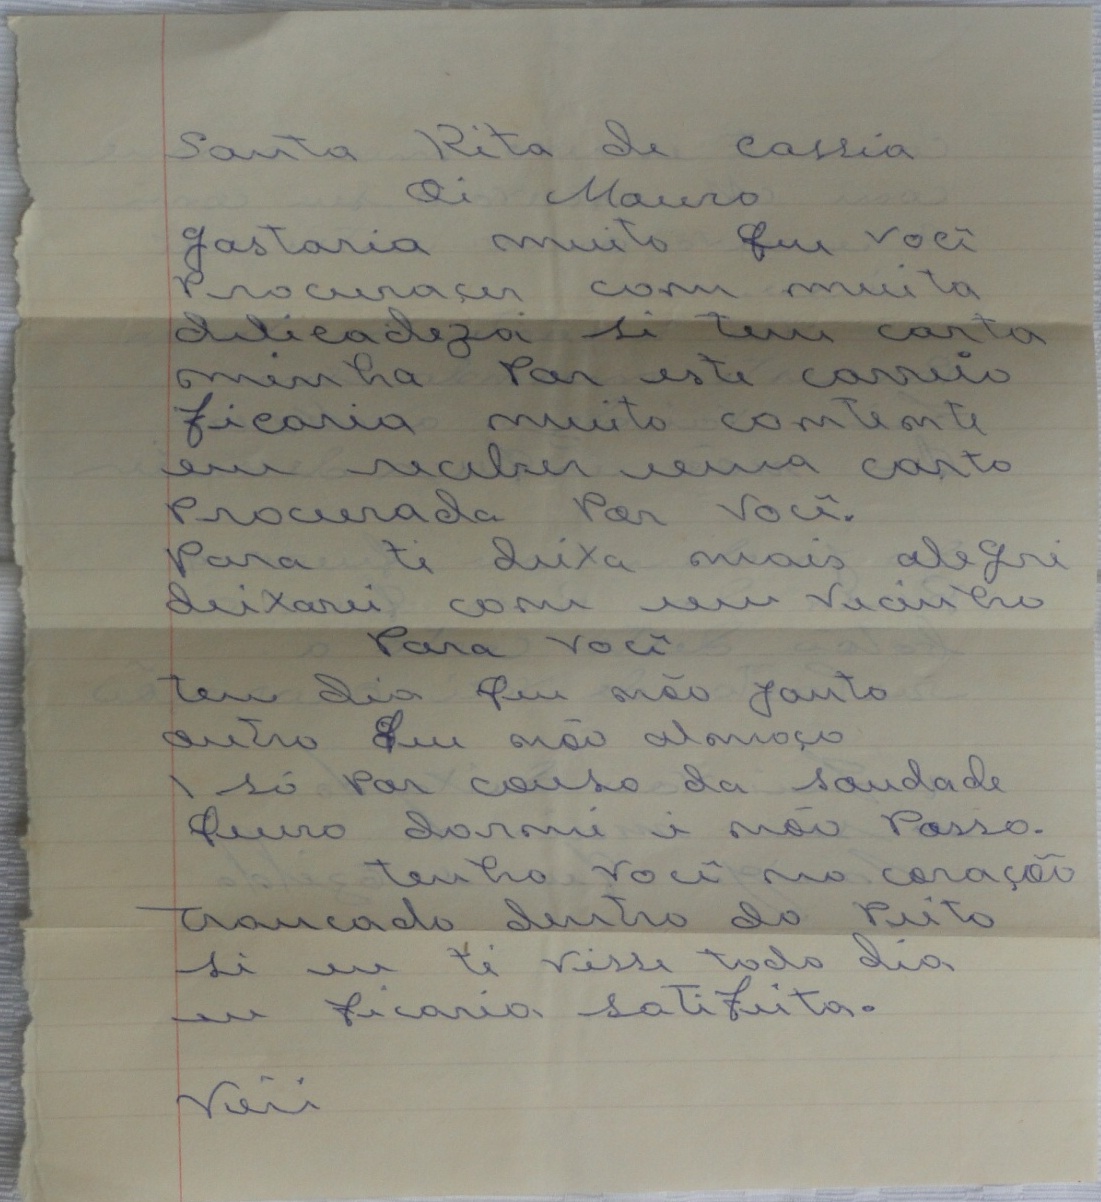 Santa Rita de cassia
Oi Mauro
gostaria muito que você
Procuraçer com muita
delicadeza si tem carta
minha Por este correio
ficaria muito contente
em receber uma carta
Procurada Por você.
Para ti deixa mais alegri
deixarei com um vecinho
Para você
tem dia que não janto
outro que não almoço
só Por causo da saudade
quero dormi i não Posso.
tenho você no coração
trancado dentro do Peito
si eu ti visse todo dia
eu ficaria satifeita.